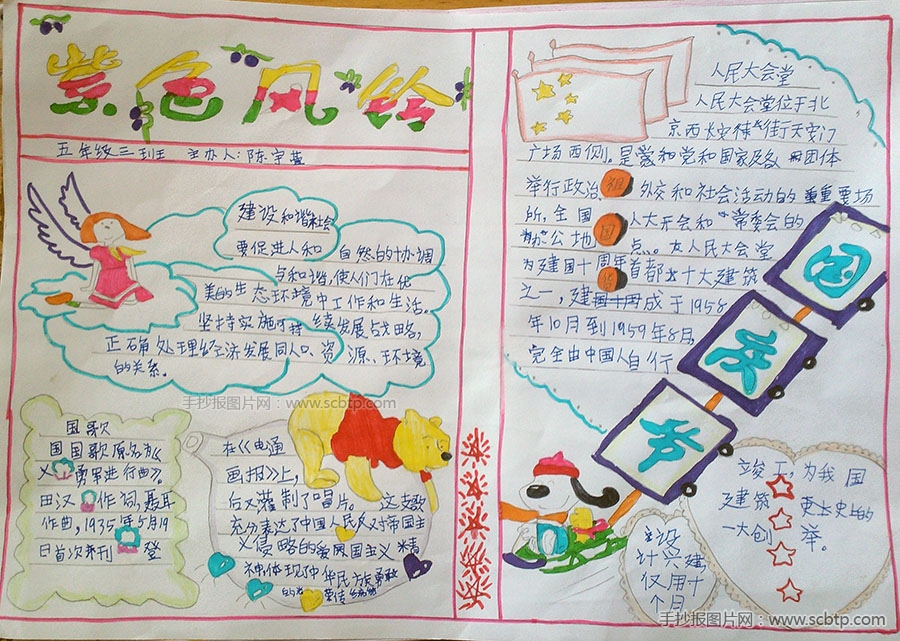 紫色风铃
五年级三班 主办人:陈宇
建设和谐社会
要促进人和
自然的协调
点和谐,使人们在优
美的生态环境中工作和生活。
坚持实施可持续发展战略,
正确处理经济发展同人口、资源、环境
的关系。
手抄报图片网:www.scbtp.com
国歌
国国歌原名为《
义勇军进行曲》。
田汉作词,聂耳
作曲,1935年5月19
日首次来刊登
在《电通
画报》上,
后又灌制了唱片。这支歌
充分表达了中国人民反对帝国主
义侵略的爱国主义精
神体现了中华民族勇敢
人民大会堂
人民大会堂位于北
京西长安街天安门
广场西侧。是党和国家及各团体
举行政治祖外交和社会活动的重要场
所,全国国人大开会和常委会的
办公地点。人民大会堂
为建国十周年首都十大建筑
之一,建成于1958
年10月到1959年8月,
完全由中国人自行
国庆节
设
计兴建
仅用十
个月
竣工,为我国
建筑史上的
一大创举。
手抄报图片网:www.scbtp.com